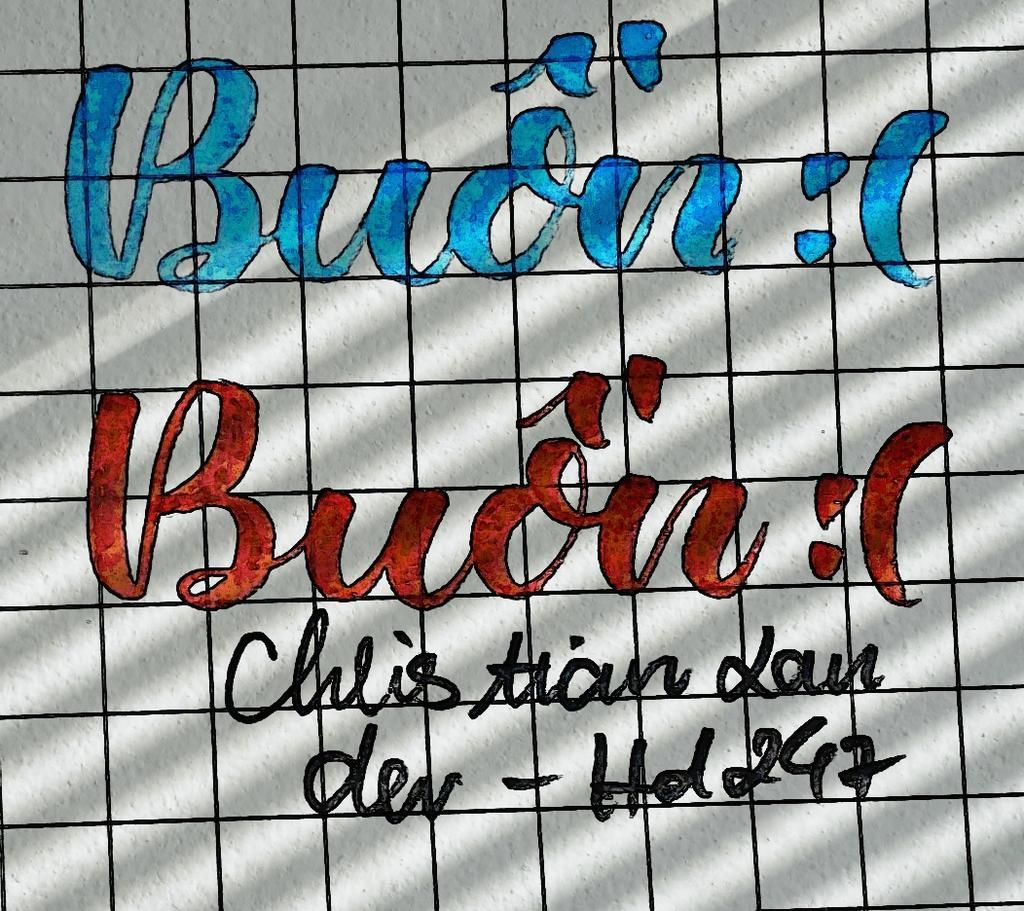 Buồn :(
Buồn :(
Christian Lan
der - Hd247